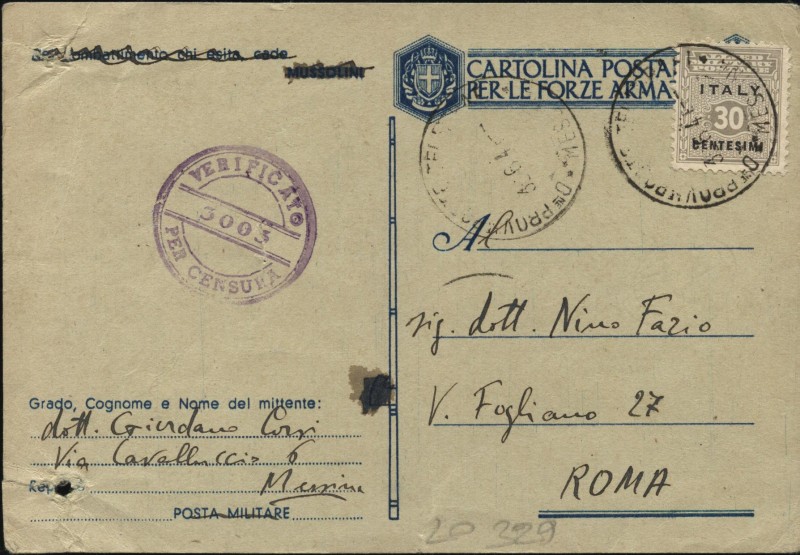 combattimento chi esita, cade
MUSSOLINI
CARTOLINA POSTA
PER LE FORZE ARMA
ITALY
30
CENTESIMI
VERIFICATO
3003
PER CENSURA
Al
sig. dott. Nino Fazio
V. Fogliano 27
ROMA
Grado, Cognome e Nome del mittente:
dott. Giordano Corsi
Via Cavalluccio 6
Messina
POSTA MILITARE
20 329